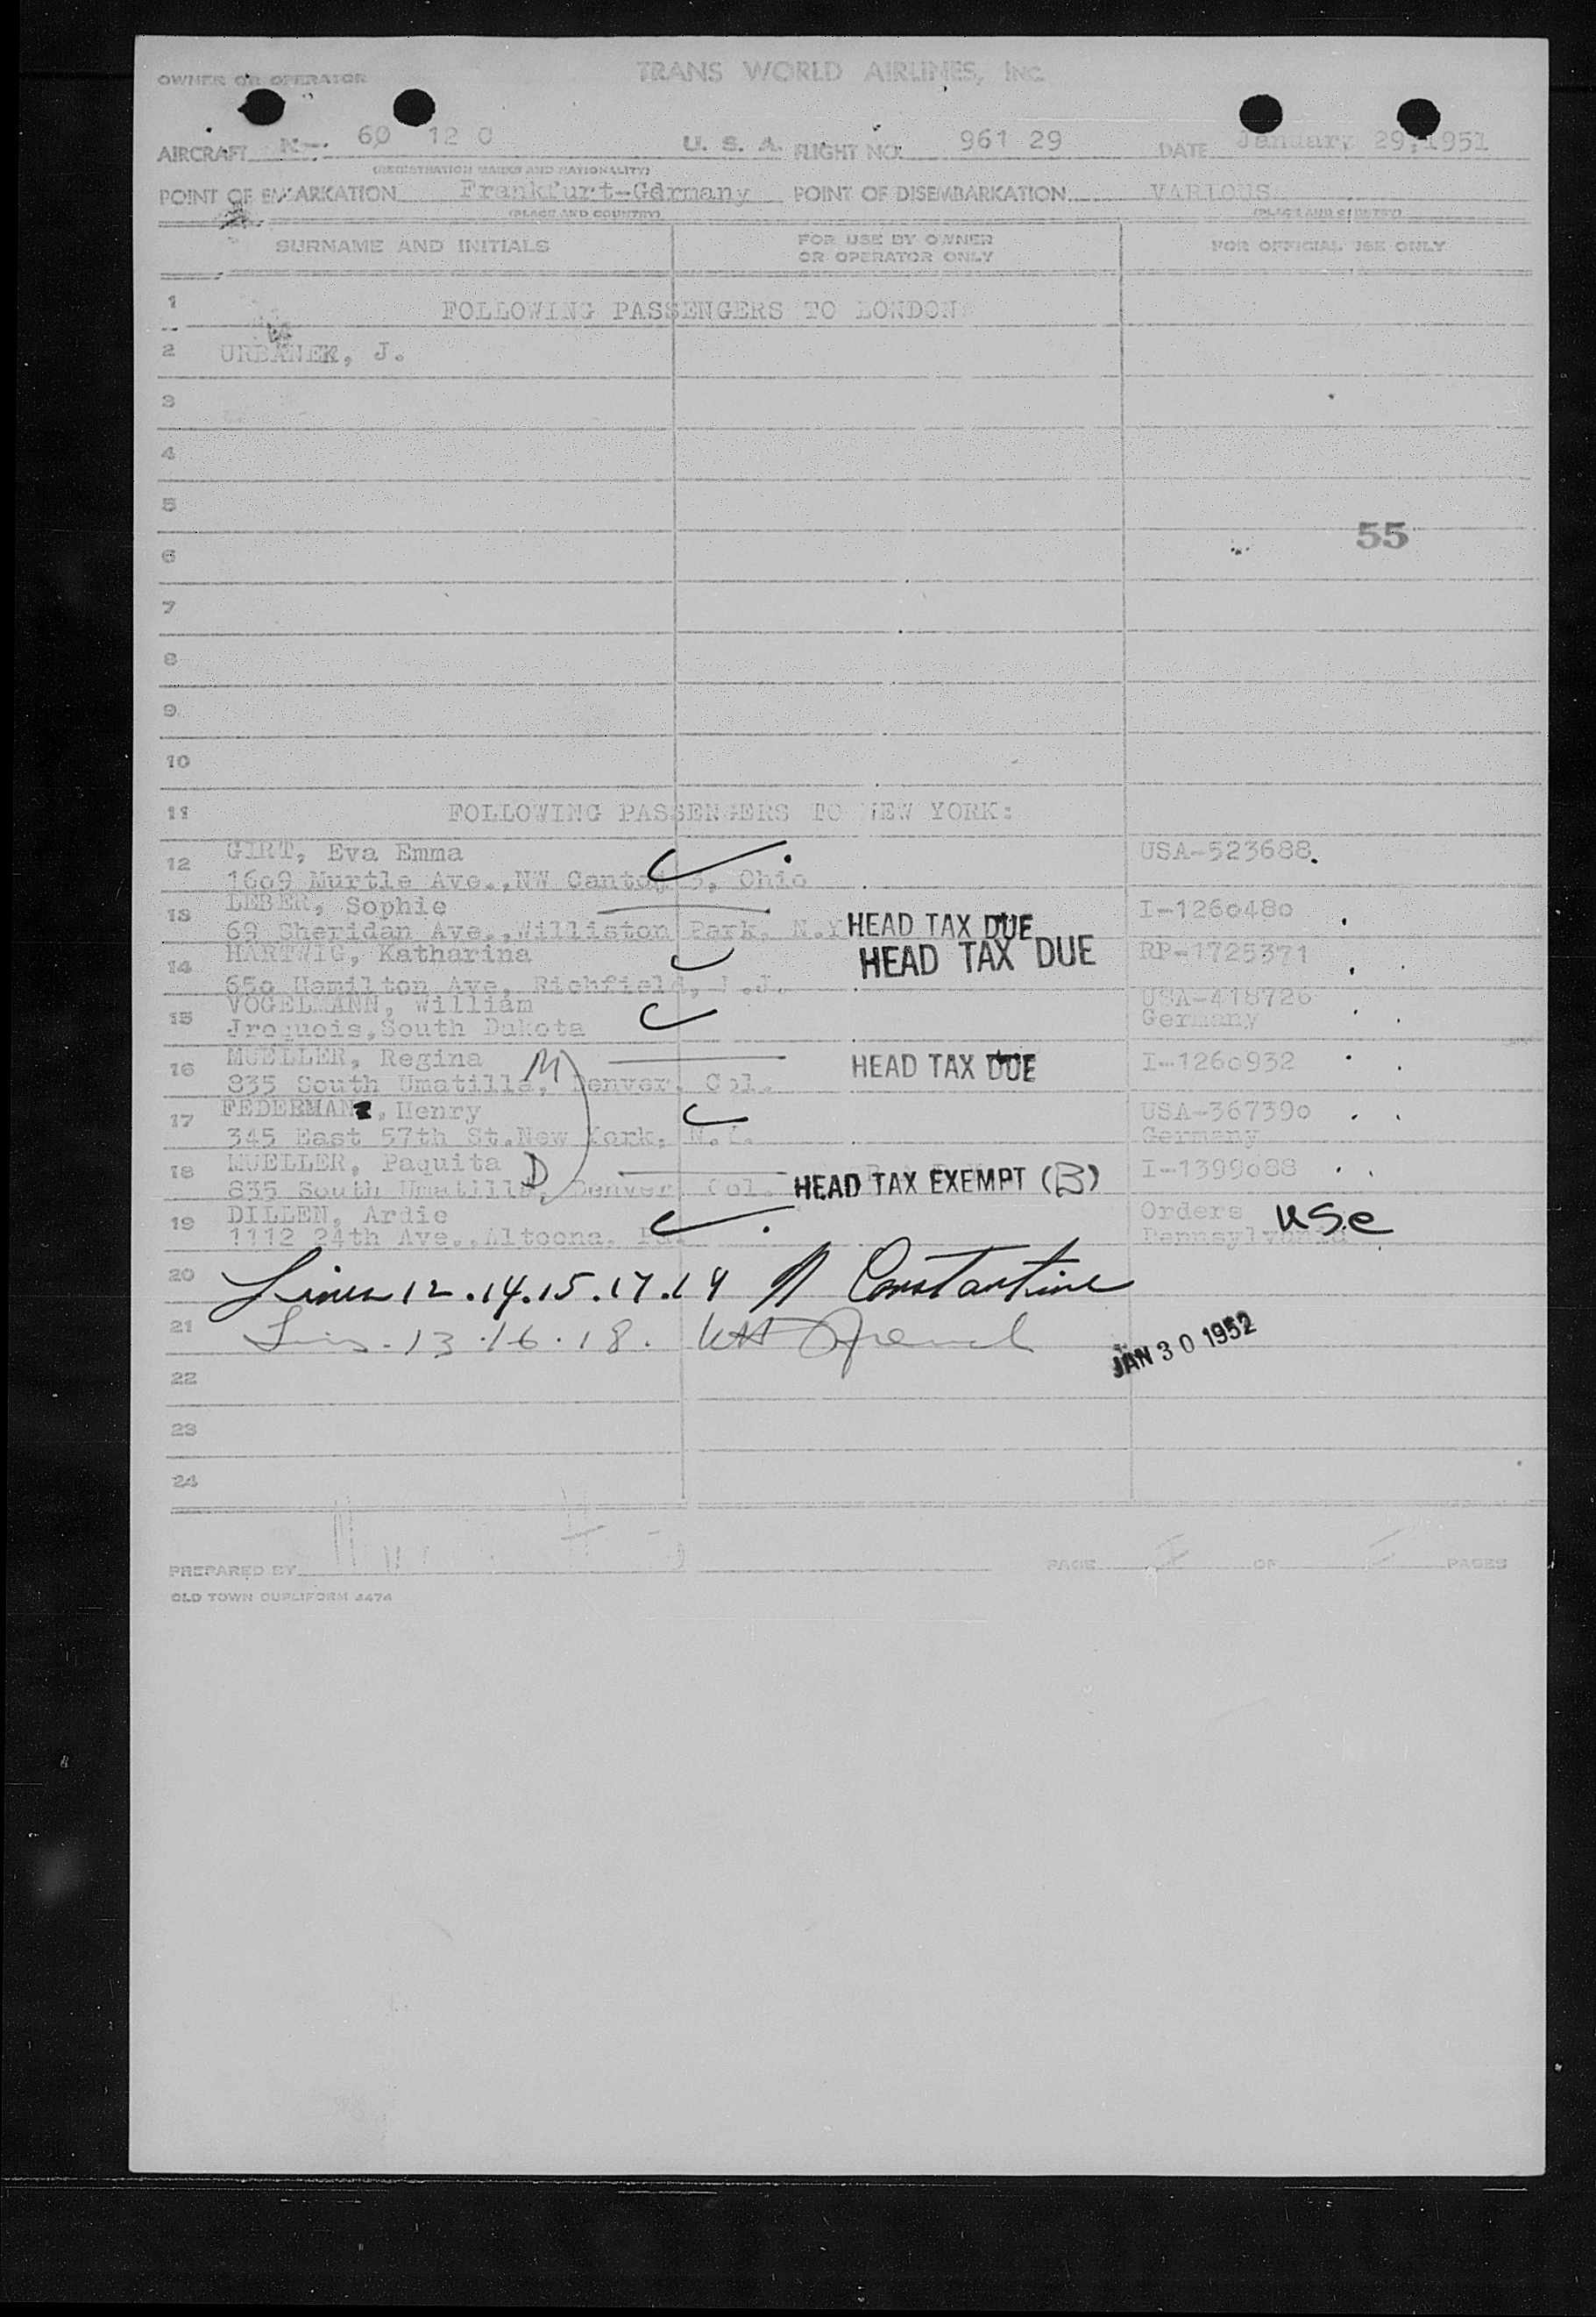 OWNER OR OPERATOR TRANS WORLD AIRLINES, INC.
AIRCRAFT N-. 60 12 C U. S. A. FLIGHT NO. 961 29 DATE January 29, 1951
(REGISTRATION MARKS AND NATIONALITY)
POINT OF EMBARKATION Frankfurt-Germany POINT OF DISEMBARKATION VARIOUS
(PLACE AND COUNTRY) (PLACE AND COUNTRY)
SURNAME AND INITIALS FOR USE BY OWNER OR OPERATOR ONLY FOR OFFICIAL USE ONLY
1 FOLLOWING PASSENGERS TO LONDON
2 URBANEK, J.
3
4
5
55
6
7
8
9
10
11 FOLLOWING PASSENGERS TO NEW YORK:
12 GIRT, Eva Emma USA-523688.
1609 Murtle Ave.,NW Canton 3, Ohio
13 LEBER, Sophie I-1260480
69 Sheridan Ave.,Williston Park, N.Y HEAD TAX DUE
14 HARTWIG, Katharina HEAD TAX DUE RP-1725371
650 Hamilton Ave, Richfield, N.J.
15 VOGELMANN, William USA-418726
Jroquois,South Dakota Germany
16 MUELLER, Regina M HEAD TAX DUE I-1260932
835 South Umatilla, Denver, Col.
17 FEDERMANN, Henry USA-367390
345 East 57th St.New York, N.Y. Germany
18 MUELLER, Paquita D I-1399088
835 South Umatilla, Denver, Col. HEAD TAX EXEMPT (B)
19 DILLEN, Ardie Orders USC
1112 24th Ave.,Altoona, Pa. Pennsylvania
20 Lines 12.14.15.17.19 Constantine
21 Lines.13.16.18.
JAN 30 1952
22
23
24
PREPARED BY PAGE OF PAGES
OLD TOWN DUPLIFORM 4474